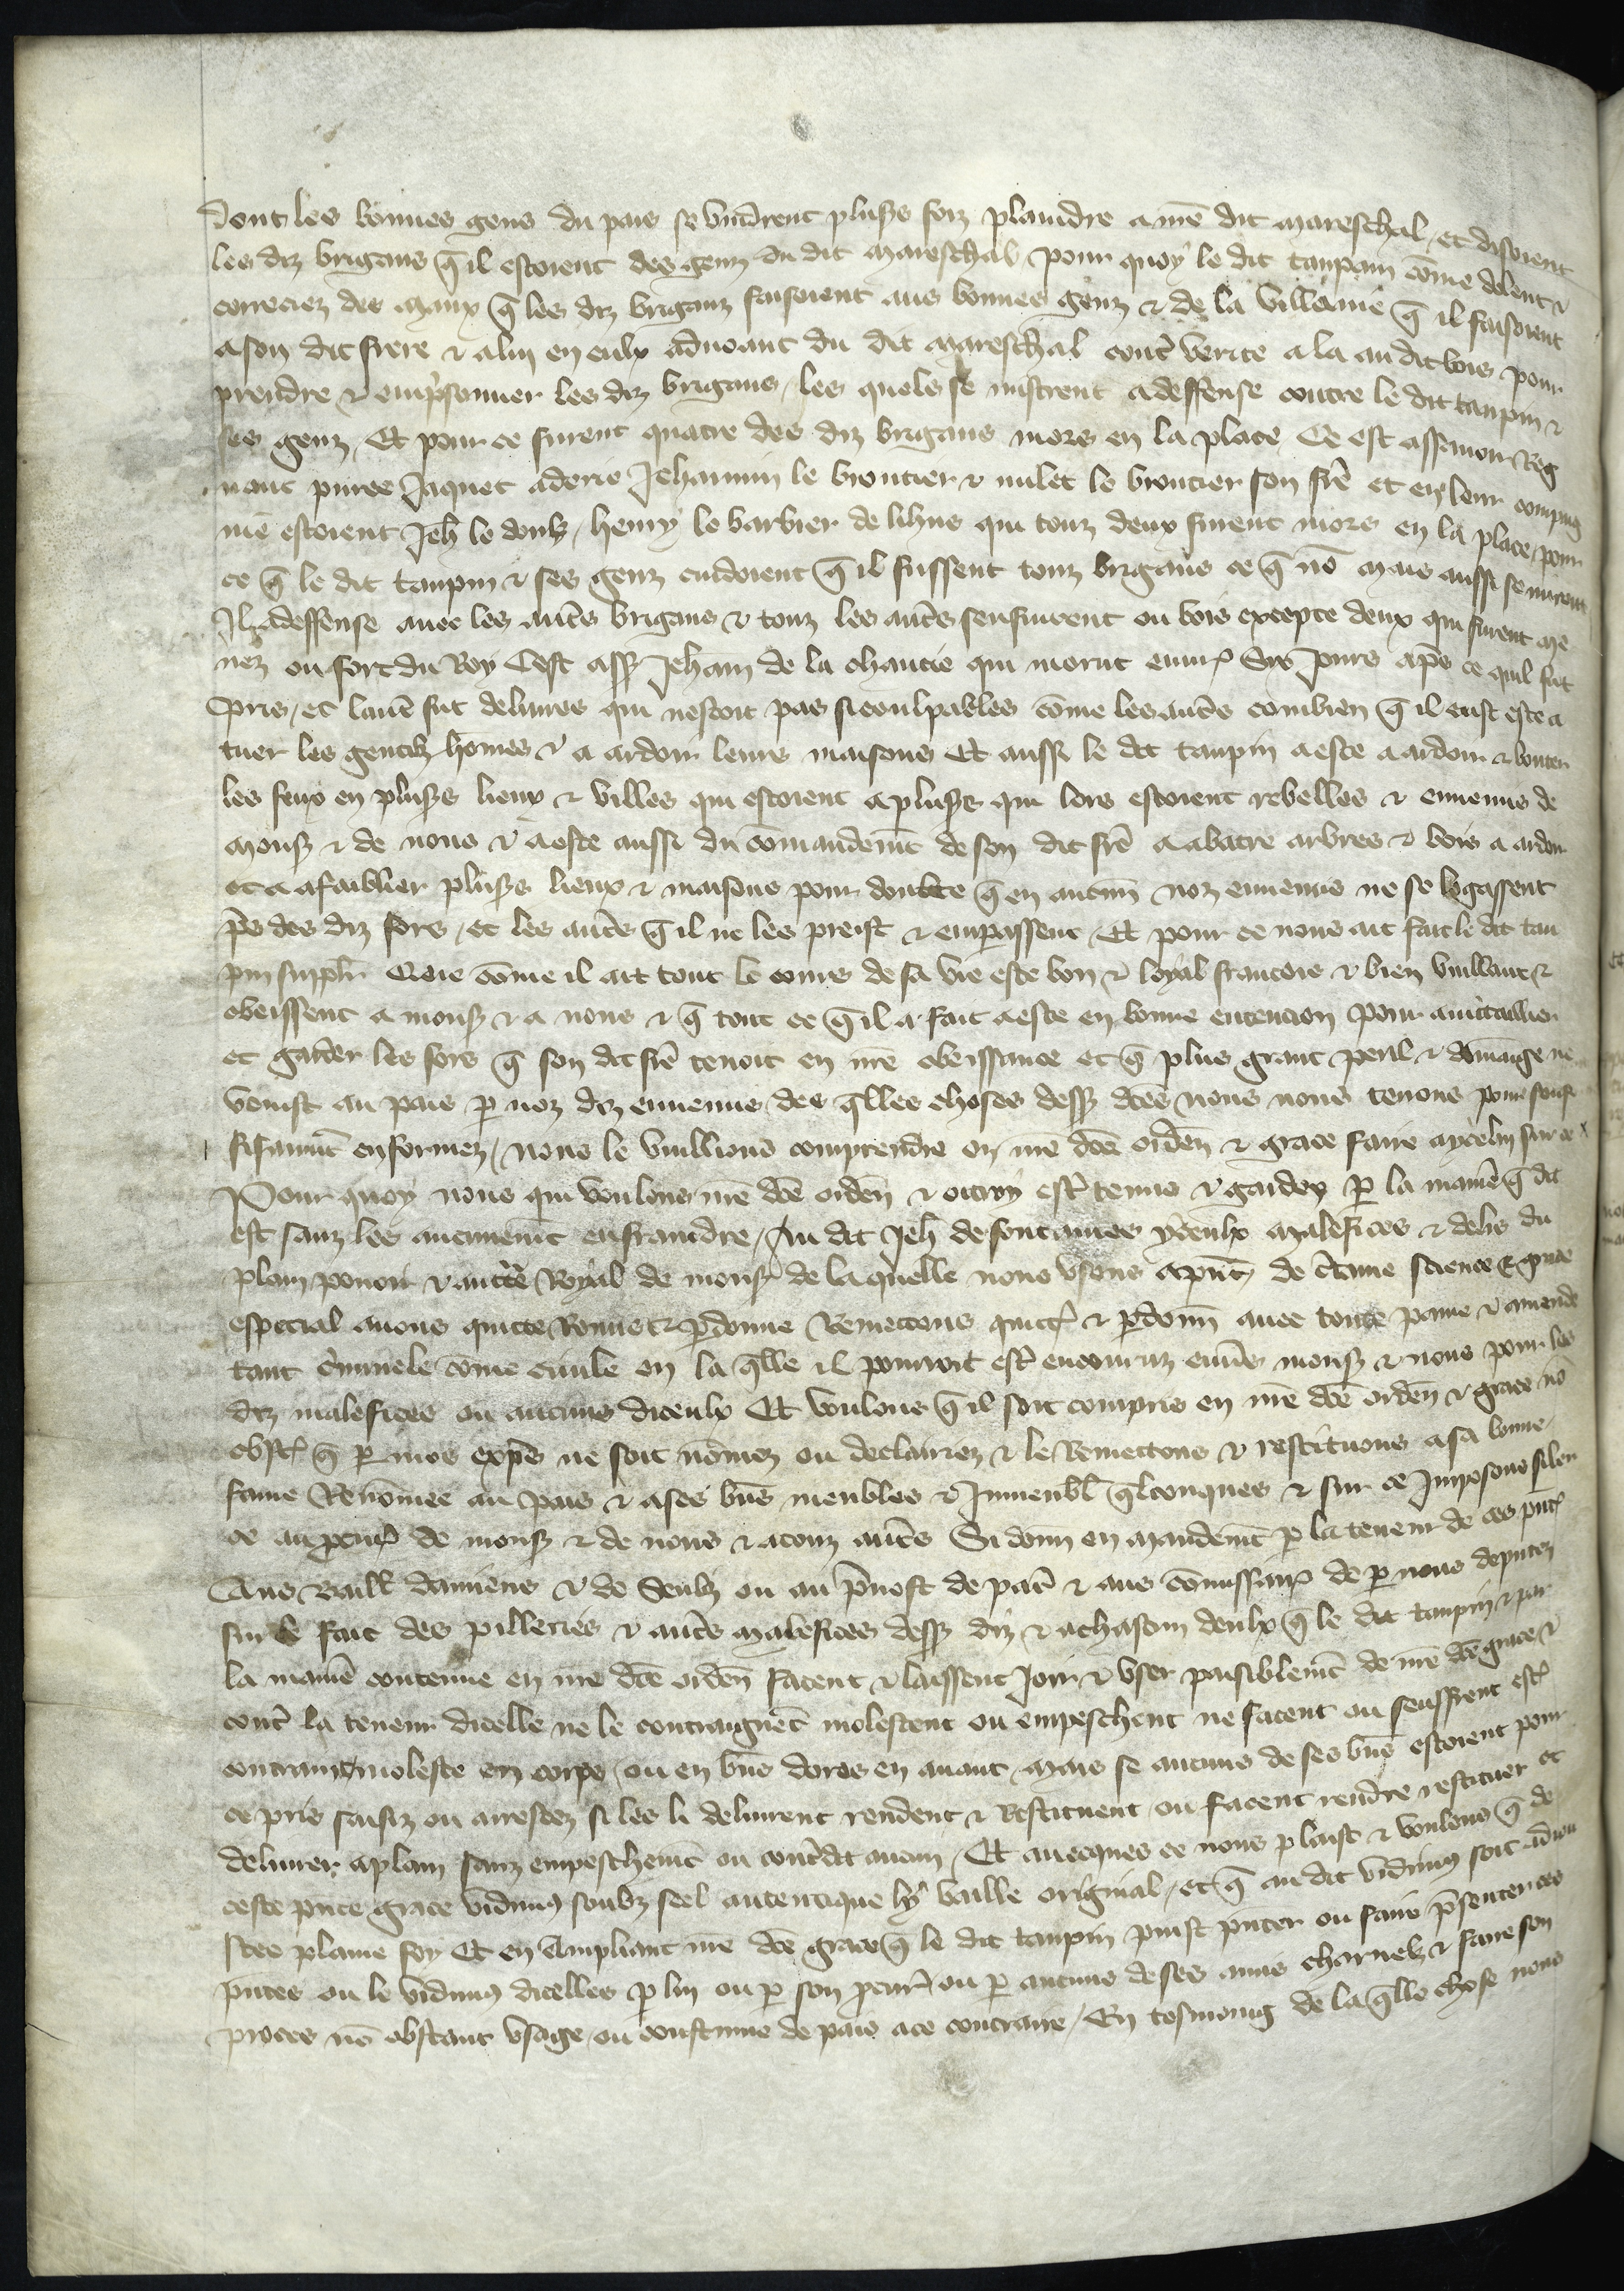 dont les bonnes gens du pais se vindrent pluss foiz plaindre a nre dit mareschal et disoient
les diz brigans q̄ il estoient des genz du dit mareschal pour quoy le dit taupain cōme dolent &
correciez des maux q̄ les diz briganz faisoient aus bonnes genz & de la villenie q̄ il faisoient
a son dit frere & a lui en eulx advoant du dit mareschal contr̄ verite a la au dit bois pour
prendre & emprisonner les diz brigans les quels se mistrent a deffense contre le dit taupin &
ses genz Et pour ce furent quatre des diz brigans mors en la place Ce est assavoir Reg
naut Jaquet Jehannin le broutier & le broutier son frē et en leur compaig
nie estoient Jeh̄ le doulz henry le barbier de lihus qui touz deux furent mors en la place pour
ce q̄ le dit taupin & ses genz cuidoient q̄ il fussent touz brigans ce q̄ nō mais aussi se mirent
Il a deffense avec les autres brigans & touz les autres senfuirent ou bois excepte deux qui furent me
nez ou fort du Roy Cest assr Jehan de la chaucie qui morut envirō six jours apres ce quil fut
pris et lautre fut delivres qui nestoit pas si coulpables cōme les autres combien q̄ il eust este a
tuer les gentilz hōmes & a ardoir leurs maisons Et aussi le dit taupin a este a ardoir & bouter
les feux en pluss lieux & villes qui estoient a pluss qui lors estoient rebelles & ennemis de
mons̄ & de nous & a este aussi du cōmandemt de son dit frē a abatre arbres & bois a ardoir
et a afaiblier pluss lieux & maisons pour doubte q̄ en aucun noz ennemis ne se logassent
pres des diz fors et les autres q̄ il ne les preist & empassent Et pour ce nous ait fait le dit tau
pin suppl̄r Que cōme il ait tout le cours de sa vie este bon & loyal francois & bien vuillant &
obeissent a mons̄ & a nous & q̄ tout ce q̄ il a fait a este en bonne entencion pour avitaillier
et garder les fors q̄ son dit frē tenoit en nrē obeissance et q̄ plus grant peril & dōmaige ne
venist au pais p̄ noz diz ennemis des q̄lles choses dess dcēs nous nous tenons pour souf
fisanmt enformez nous le vuillions comprendre en nrē dcē orden̄ & grace faire a ycelui sur ce
Pour quoy nous qui voulons nrē dcē orden̄ & ottroy estr̄ tenus & gardez p̄ la manie͂re q̄ dit
est sanz les aucunemt enfraindre Au dit Jeh̄ de fontaines yceulx malefices & deliz du
plain povoir & auctte Royal de mons̄ de laquelle nous usons a pn̄t de c̄taine science & grace
especial avons quitte Remis & p̄donne Remettons quictō & p̄donn̄ avec toute paine & amende
tant c̄iminele cōme civile en la q̄lle il pourroit estr̄ encouruz envers mons̄ & nous pour les
diz malefices ou aucuns diceulx Et voulons q̄ il soit compris en nrē dcē orden̄ & grace nō
obst̄ q̄ p̄ mos exprēs ne soit nōmez ou declairez & le Remettons & restituons a sa bonne
fame Renōmee au pais & a ses biēs meubles & Jmmeubl̄ q̄lconques & sur ce Jmposons silen
ce au procur̄ de mons̄ & de nous & a touz autres Si donn̄ en mandemt p̄ la teneur de ces pn̄tes
Aus Baill̄ damiens & de Senlis ou au prevost de paris & aus cōmissaires de p̄ nous deputez
sur le fait des pilleries & autres malefices dess diz & a chascun deulx q̄ le dit taupin & par
la manie͂re contenue en nrē dcē orden̄ facent & laissent joir & user paisiblemt de nrē dcē grace &
contr̄ la teneur dicelle ne le contraignēt molestent ou empeschent ne facent ou seuffrent estr̄
contraint moleste en corps ou en biēs dores en avant mais se aucuns de ses biēs estoient pour
ce pris saisiz ou arrestez si les li delivrent rendent & Restituent ou facent rendre restituer et
delivrer a plain sanz empeschemt ou cont̄dit aucun Et avecques ce nous plaist & voulons q̄ de
ceste pn̄te grace vidimus soubz seel autentique ly baille original et q̄ au dit vidimus soit adiou
stee plaine foy Et en ampliant nrē dcē grace q̄ le dit taupin puist pn̄ter ou faire presenter ces
pn̄tes ou le vidimus dicelles p̄ lui ou p̄ son procur̄ ou p̄ aucuns de ses amis charnelz & faire son
proces nō obstant usage ou coustume de pais a ce contraire En tesmoing de la q̄lle chose nous